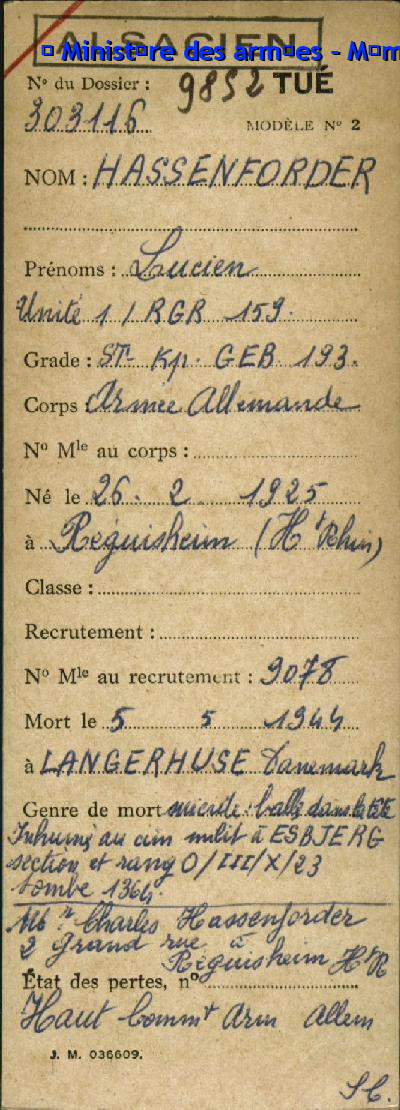 ALSACIEN
� Minist�re des arm�es - M�m
N° du Dossier : 9852 TUÉ
303116
MODÈLE N° 2
NOM : HASSENFORDER
Prénoms : Lucien
Unité 1 / RGR 159.
Grade : St- Kp. GEB 193.
Corps Armée Allemande
N° Mle au corps :
Né le 26. 2 1925
à Réguisheim (Ht Rhin)
Classe :
Recrutement :
N° Mle au recrutement : 9078
Mort le 5 5 1944
à LANGERHUSE Danemark
Genre de mort suicide : balle dans la tête
Inhumé au cim milit à ESBJERG
section et rang O/III/X/23
tombe 1364.
Mr Charles Hassenforder
2 Grand rue à
Réguisheim Ht R
État des pertes, n°
Haut Commt Arm Allem
J. M. 036609.